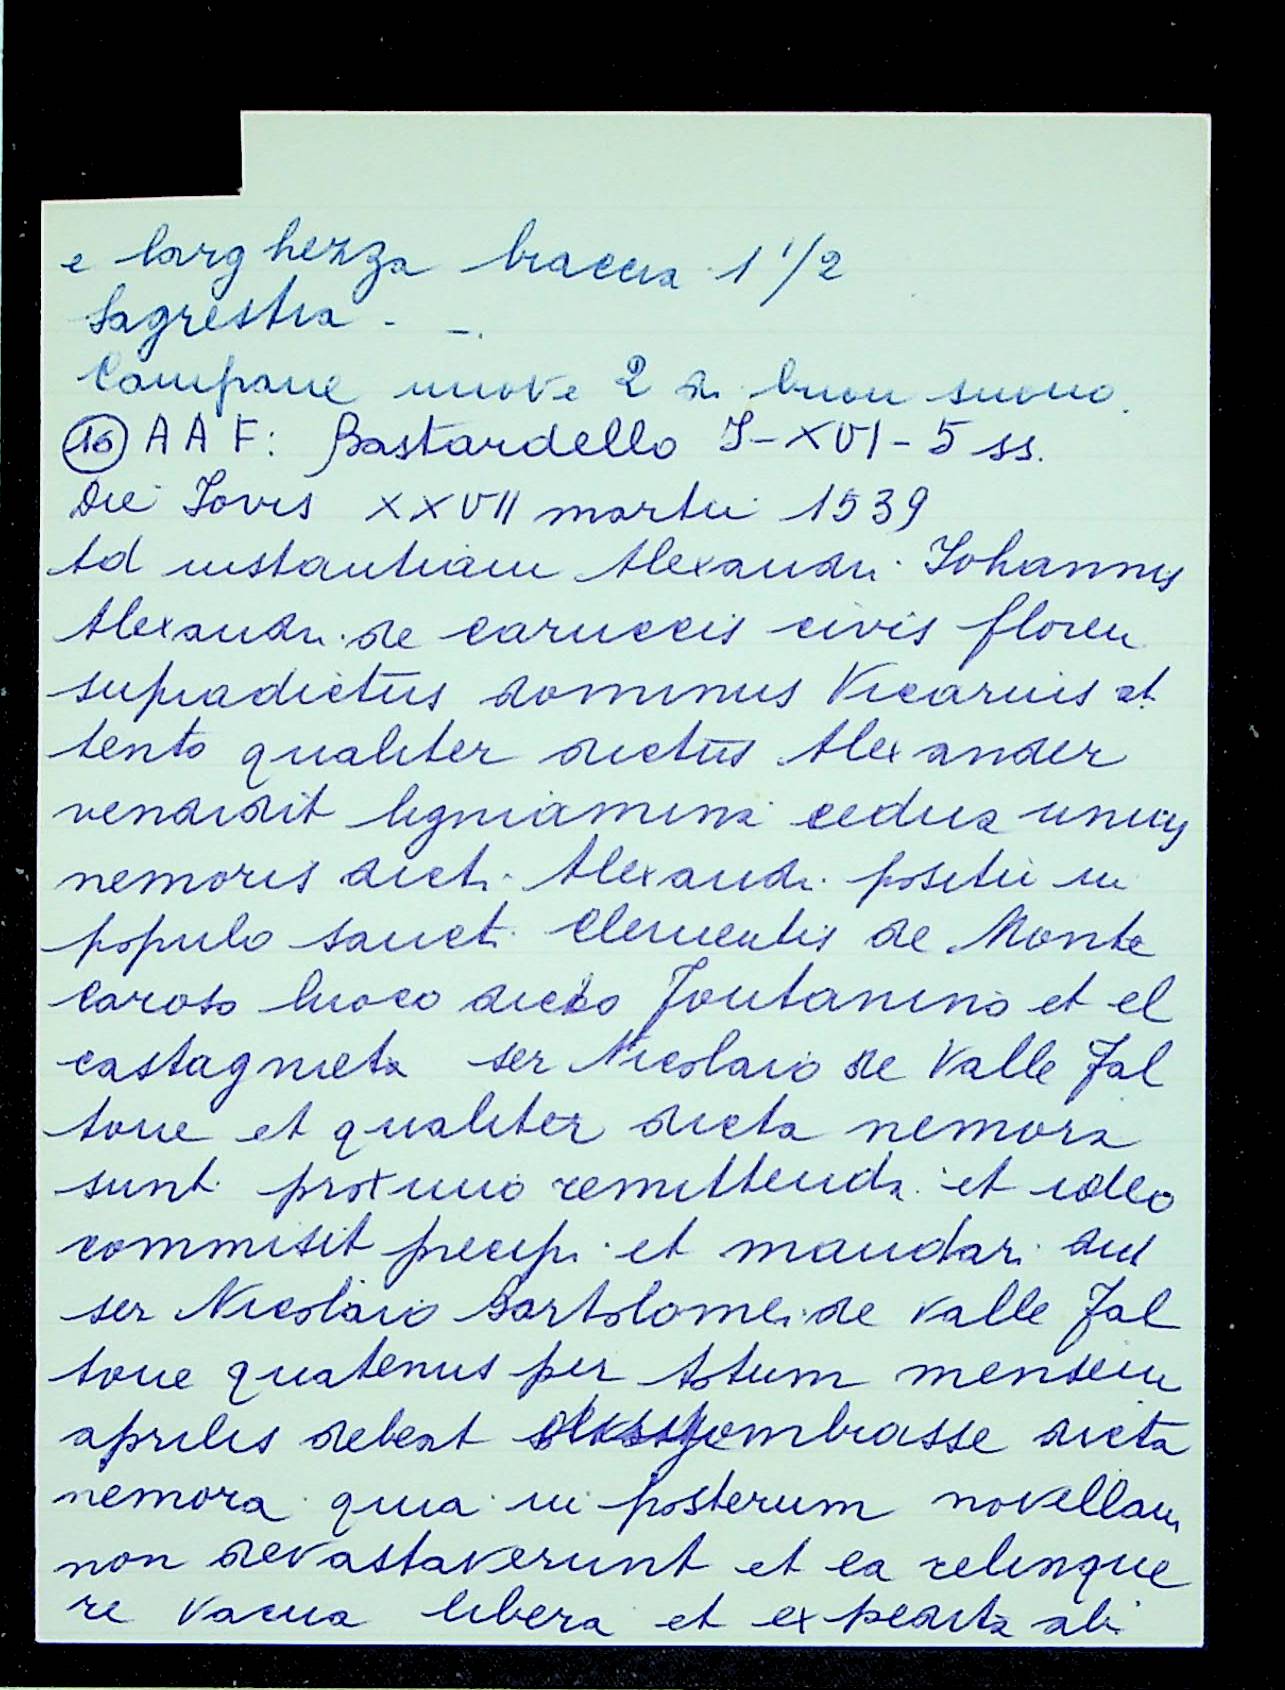 e larghezza braccia 1 1/2
Sagrestia - -.
Campane nuove 2 di buon suono.
(16) A A F: Bastardello I-XVI-5 ss.
Die Iovis XXVII martii 1539
Ad instantiam Alexandri Iohannis
Alexandri de Caruccis civis floren
supradictus dominus Vicarius at
tento qualiter dictus Alexander
vendidit ligniamina cedua unius
nemoris dicti Alexandri positii in
populo sancti Clementis de Monte
Caroso luoco dicto Fontanino et el
castagneta ser Nicolaio de Valle Fal
tone et qualiter dicta nemora
sunt proximo remittenda et ideo
commisit precipi et mandari
ser Nicolaio Bartolomei de Valle Fal
tone quatenus per totum mensem
aprilis debeat disgombrasse dicta
nemora quia in posterum novellam
non devastaverunt et ea relinque
re vacua libera et expedita ab